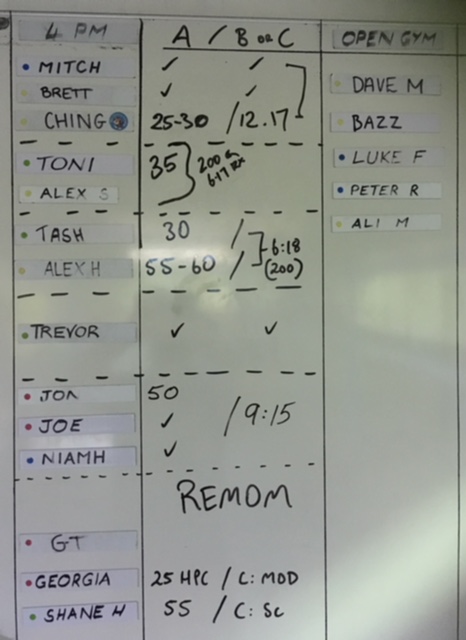 4 PM A / B OR C OPEN GYM
MITCH ✓ ✓
BRETT ✓ ✓
CHING 25-30 / 12.17
TONI 35 200
ALEX S
TASH 30 /
ALEX H 55-60 / 6:18
(200)
TREVOR ✓ ✓
JON 50
JOE ✓ / 9:15
NIAMH ✓
REMOM
GT
GEORGIA 25 HPC / C: MOD
SHANE H 55 / C: SC
DAVE M
BAZZ
LUKE F
PETER R
ALI M